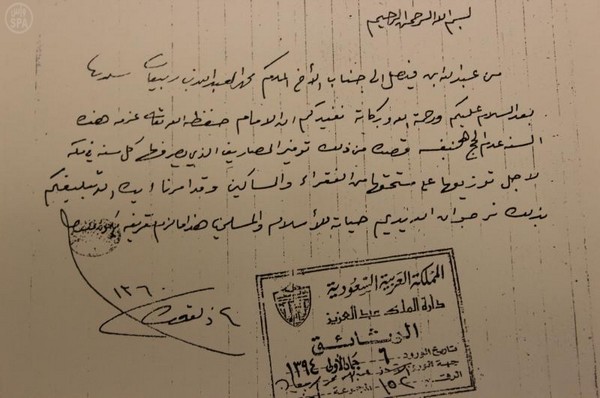 بسم الله الرحمن الرحيم
من عبدالله ابن فيصل الى جناب الأخ المكرم محمد العبدالله ربيعان سلمه
بعد السلام عليكم ورحمة الله وبركاته نفيدكم ان الامام حفظه الله تعالى عزم هذه
السنه عدم الحج بنفسه قصده من ذلك توفير المصاريف الذي يصرفها كل سنه في مكة
لاجل توزيعها على مستحقها من الفقراء والمساكين وقد امرنا بتبليغكم
بذلك نرجوا ان الله يديم حياته للأسلام والمسلمين هذا ما لزم تعريفه
١٣٦٠
٢ ذ لقعدة
المملكة العربية السعودية
دارة الملك عبد العزيز
الوثائق
تاريخ الورود ٦ جمادى الأولى ١٣٩٤
جهة الورود
الرقم ١٥٢ المجموعة
واس
SPA